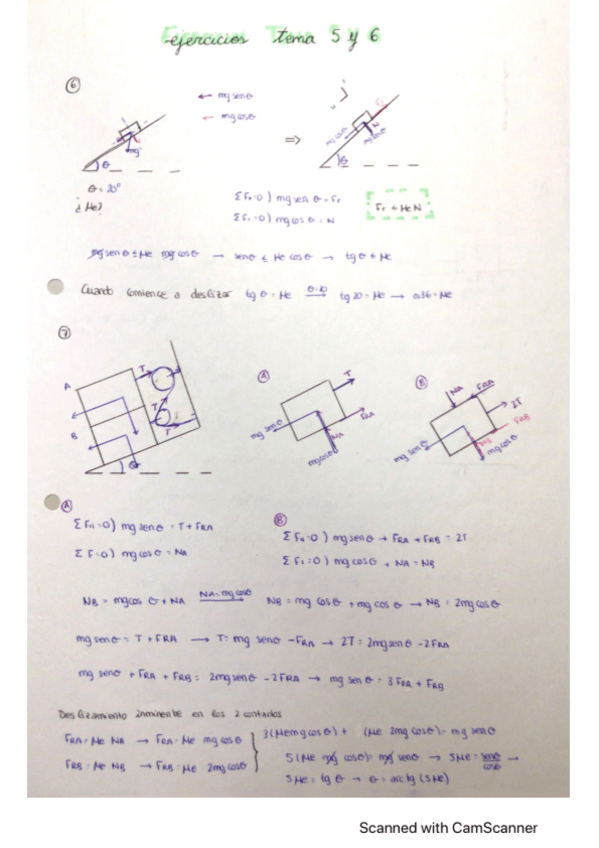 ejercicios tema 5 y 6
⑥
mg senθ
mg cosθ
mg
θ
θ = 20°
¿ μe?
⇒
Fr
N
mg cosθ
mg senθ
θ
ΣFx=0) mg sen θ = Fr
ΣFy=0) mg cos θ = N
Fr ≤ μe N
mg sen θ ≤ μe mg cos θ → sen θ ≤ μe cos θ → tg θ ≤ μe
Cuando comience a deslizar tg θ = μe θ=20 → tg 20 = μe → 0.36 = μe
⑦
A
B
T
T
T
θ
Ⓐ
T
FRA
NA
mg sen θ
mg cos θ
Ⓑ
NA
FRA
2T
FRB
NB
mg sen θ
mg cos θ
Ⓐ
ΣFx=0) mg sen θ = T + FRA
ΣF=0) mg cos θ = NA
Ⓑ
ΣFx=0) mg sen θ + FRA + FRB = 2T
ΣFy=0) mg cos θ + NA = NB
NB = mg cos θ + NA NA=mg cosθ → NB = mg cos θ + mg cos θ → NB = 2mg cos θ
mg sen θ = T + FRA → T = mg sen θ - FRA → 2T = 2mg sen θ - 2 FRA
mg sen θ + FRA + FRB = 2mg sen θ - 2 FRA → mg sen θ = 3 FRA + FRB
Deslizamiento inminente en los 2 contactos
FRA = μe NA → FRA = μe mg cos θ
FRB = μe NB → FRB = μe 2mg cos θ
3(μe mg cos θ) + (μe 2mg cos θ) = mg sen θ
5(μe mg cos θ) = mg sen θ → 5μe = senθ/cosθ →
5μe = tg θ → θ = arctg (5μe)
Scanned with CamScanner